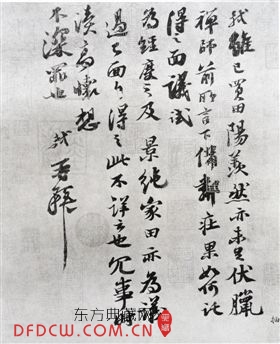 軾雖已買田陽羨然亦未足伏臘
禪師前所言下備鄰莊果如何託
得之面議試
為經度之及景純家田亦為議
過已面白得之此不詳云也冗事
瀆高懷想
不深罪也
軾再拜
东方典藏网
DFDCW.COM.CN